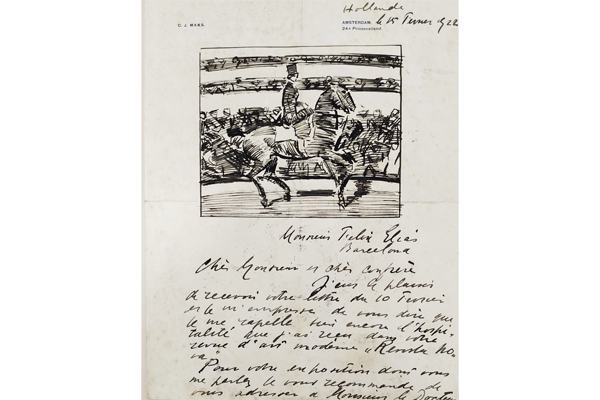 Hollande
C. J. MAKS.
AMSTERDAM, le 15 Fevrier 1922
24A Prinseneiland.
Monsieur Felix Elias
Barcelona
Cher Monsieur et cher confrère
J'eus le plaisir
de recevoir votre lettre du 10 Fevrier
et je m'empresse de vous dire que
je me rapelle encore l'hospi-
talité que j'ai reçu dans votre
revue d'art moderne „Revista No-
va"
Pour votre exposition dont vous
me parlez je vous recommande de
vous adresser à Monsieur le Docteur